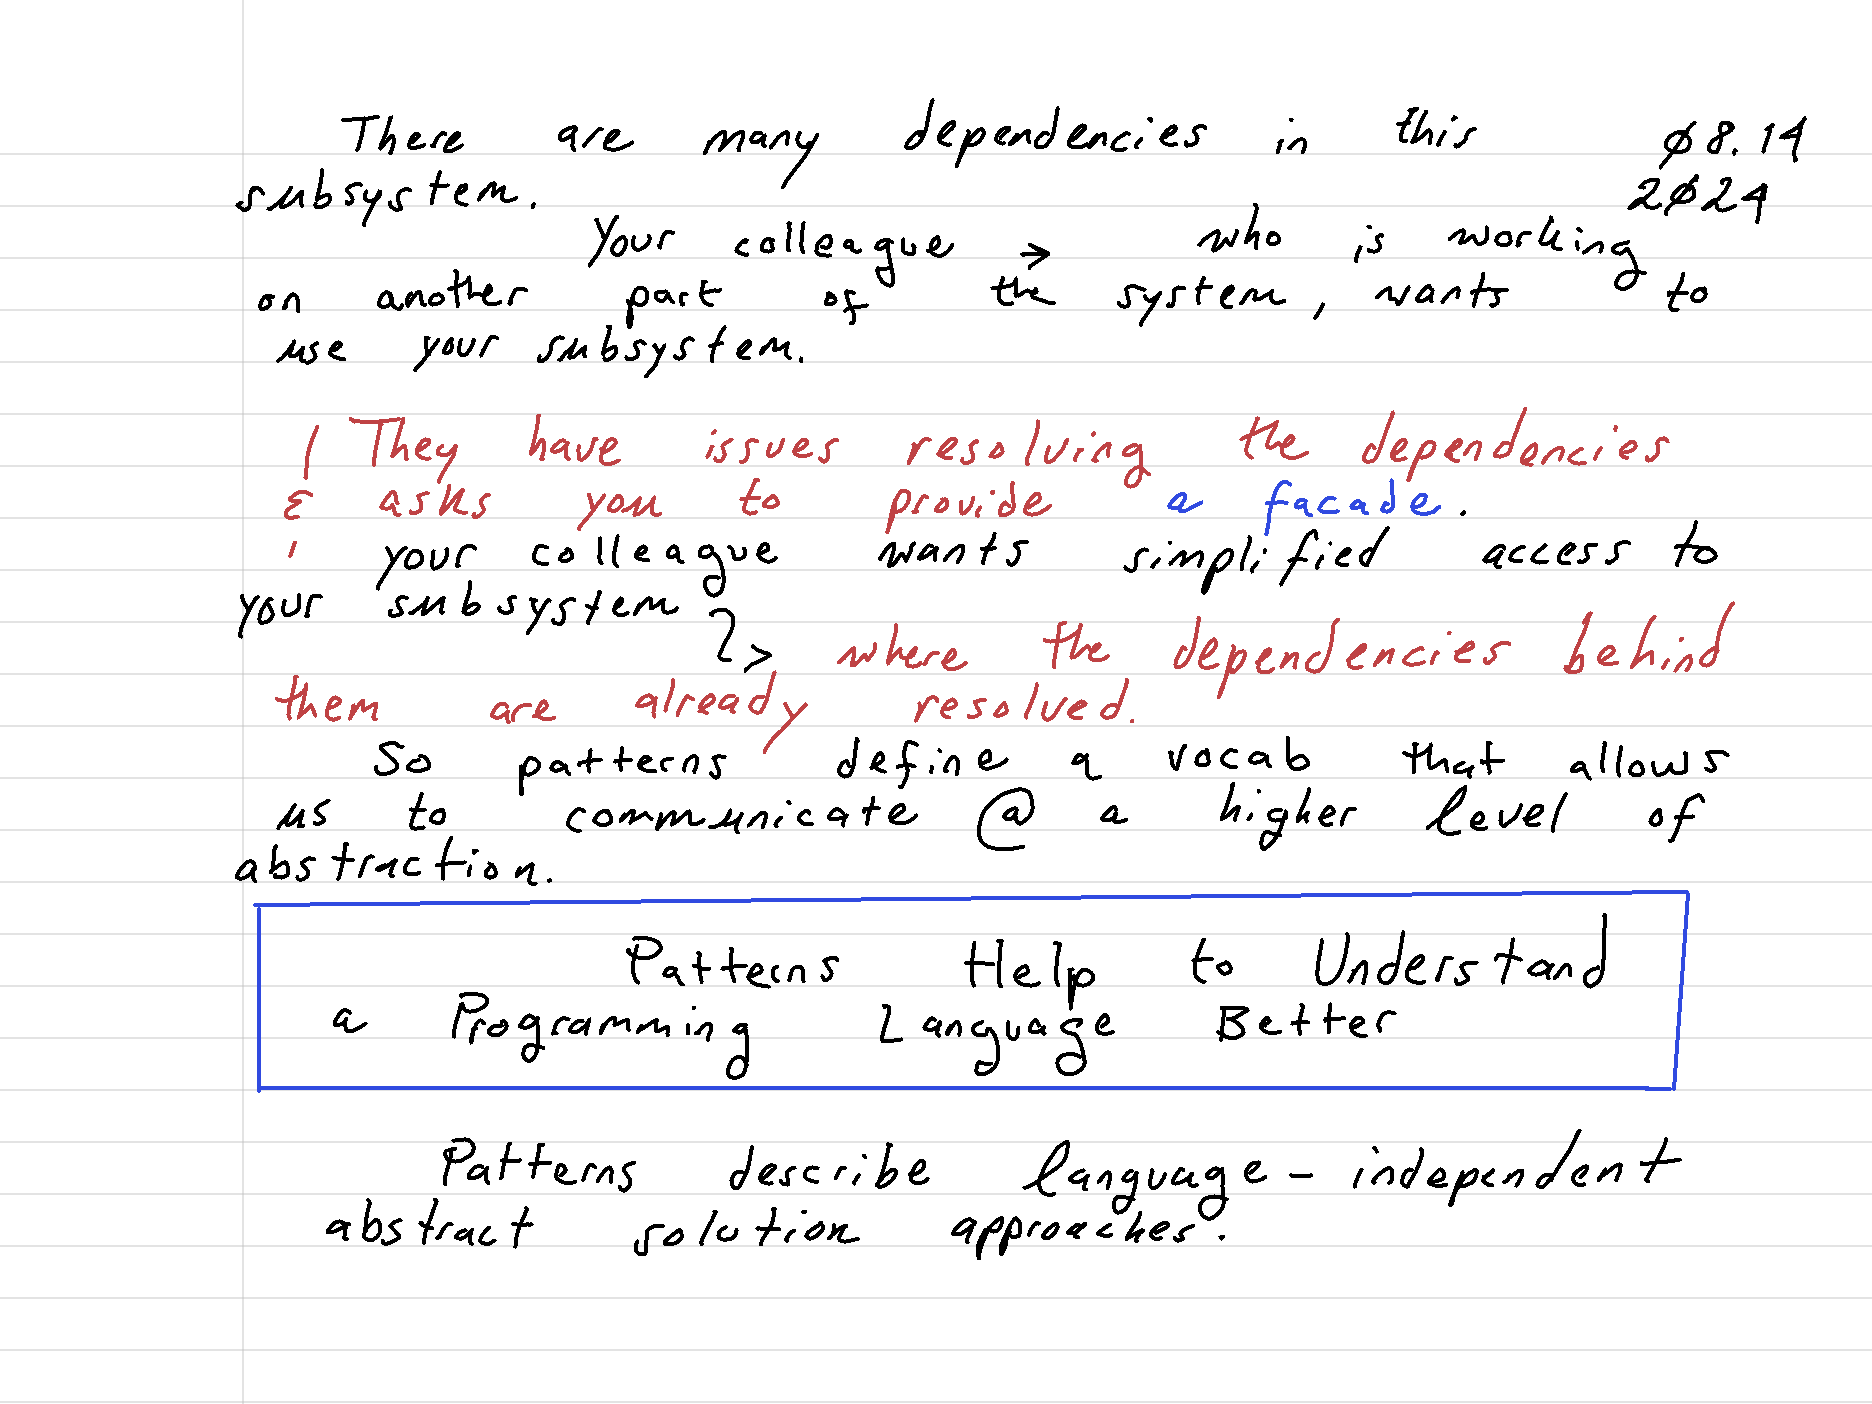 There are many dependencies in this ø8.14
subsystem. 2ø24
Your colleague → who is working
on another part of the system, wants to
use your subsystem.
They have issues resolving the dependencies
& asks you to provide a facade.
your colleague wants simplified access to
your subsystem
where the dependencies behind
them are already resolved.
So patterns define a vocab that allows
us to communicate @ a higher level of
abstraction.
Patterns Help to Understand
a Programming Language Better
Patterns describe language-independent
abstract solution approaches.